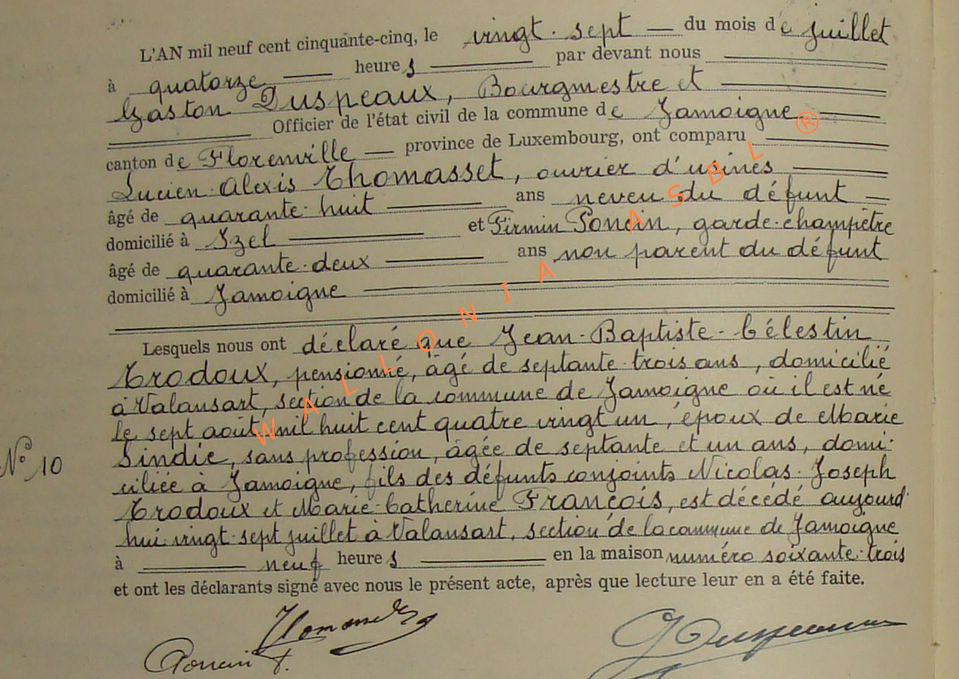 L'AN mil neuf cent cinquante-cinq, le vingt-sept du mois de juillet
à quatorze heures par devant nous
Gaston Duspeaux, Bourgmestre et
Officier de l'état civil de la commune de Jamoigne
canton de Florenville province de Luxembourg, ont comparu
Lucien-Alexis Thomasset, ouvrier d'usines
âgé de quarante-huit ans neveu du défunt
domicilié à Izel et Firmin Poncin, garde-champêtre
âgé de quarante-deux ans non parent du défunt
domicilié à Jamoigne
Lesquels nous ont déclaré que Jean-Baptiste-Célestin
Trodoux, pensionné, âgé de septante-trois ans, domicilié
à Valansart, section de la commune de Jamoigne où il est né
le sept août mil huit cent quatre vingt un, époux de Marie
Sindic, sans profession, âgée de septante et un ans, domi-
ciliée à Jamoigne, fils des défunts conjoints Nicolas-Joseph
N° 10
Trodoux et Marie-Catherine François, est décédé aujourd'
hui vingt-sept juillet à Valansart, section de la commune de Jamoigne
à neuf heures en la maison numéro soixante-trois
et ont les déclarants signé avec nous le présent acte, après que lecture leur en a été faite.
Poncin F.
G Duspeaux
WALLONIA ASBL ®